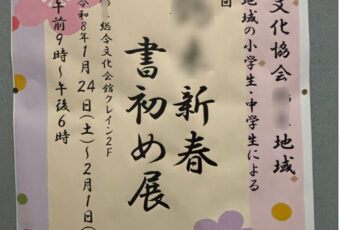 文化協会 地域
地域の小学生・中学生による
回
新春
書初め展
総合文化会館クレイン2F
令和8年1月24日(土)~2月1日(
午前9時~午後6時